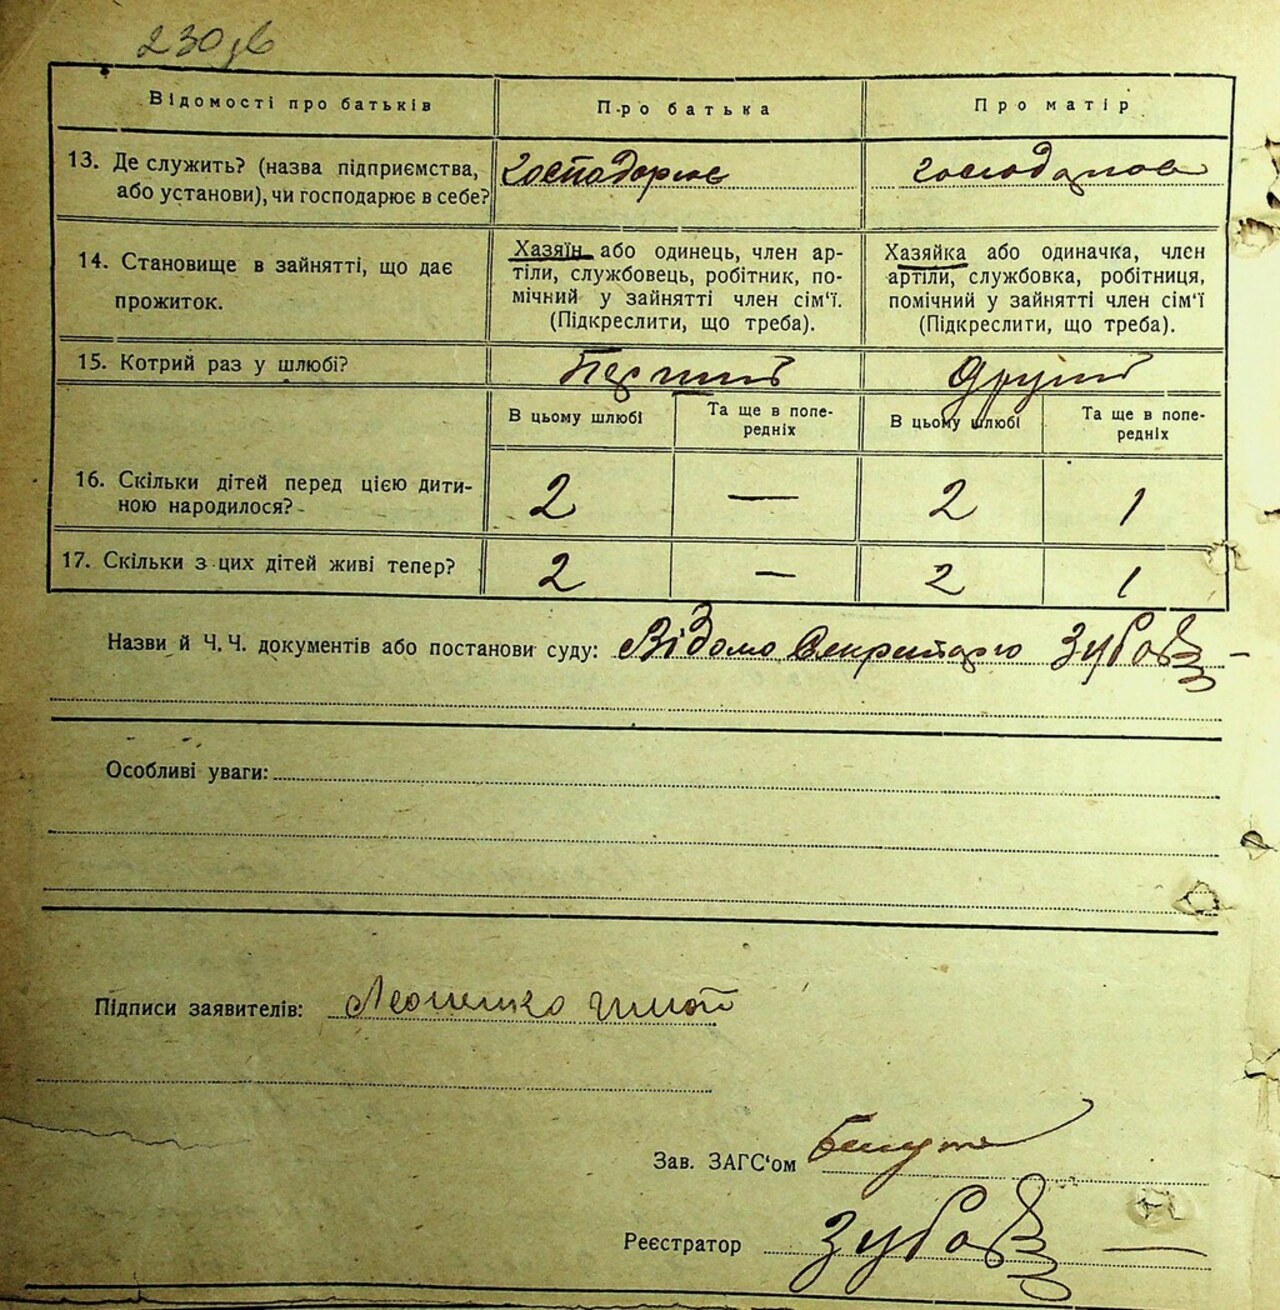 230 зв
Відомості про батьків
Про батька
Про матір
13. Де служить? (назва підприємства,
або установи), чи господарює в себе?
господарює
господарює
14. Становище в зайнятті, що дає
прожиток.
Хазяїн або одинець, член ар-
тіли, службовець, робітник, по-
мічний у зайнятті член сім'ї.
(Підкреслити, що треба).
Хазяйка або одиначка, член
артіли, службовка, робітниця,
помічний у зайнятті член сім'ї
(Підкреслити, що треба).
15. Котрий раз у шлюбі?
Перший
Другий
В цьому шлюбі
Та ще в попе-
редніх
В цьому шлюбі
Та ще в попе-
редніх
16. Скільки дітей перед цією дити-
ною народилося?
2 — 2 1
17. Скільки з цих дітей живі тепер?
2 — 2 1
Назви й Ч. Ч. документів або постанови суду: Відомо Секретарю Зубов
Особливі уваги:
Підписи заявителів:
Зав. ЗАГС'ом
Реєстратор Зубов